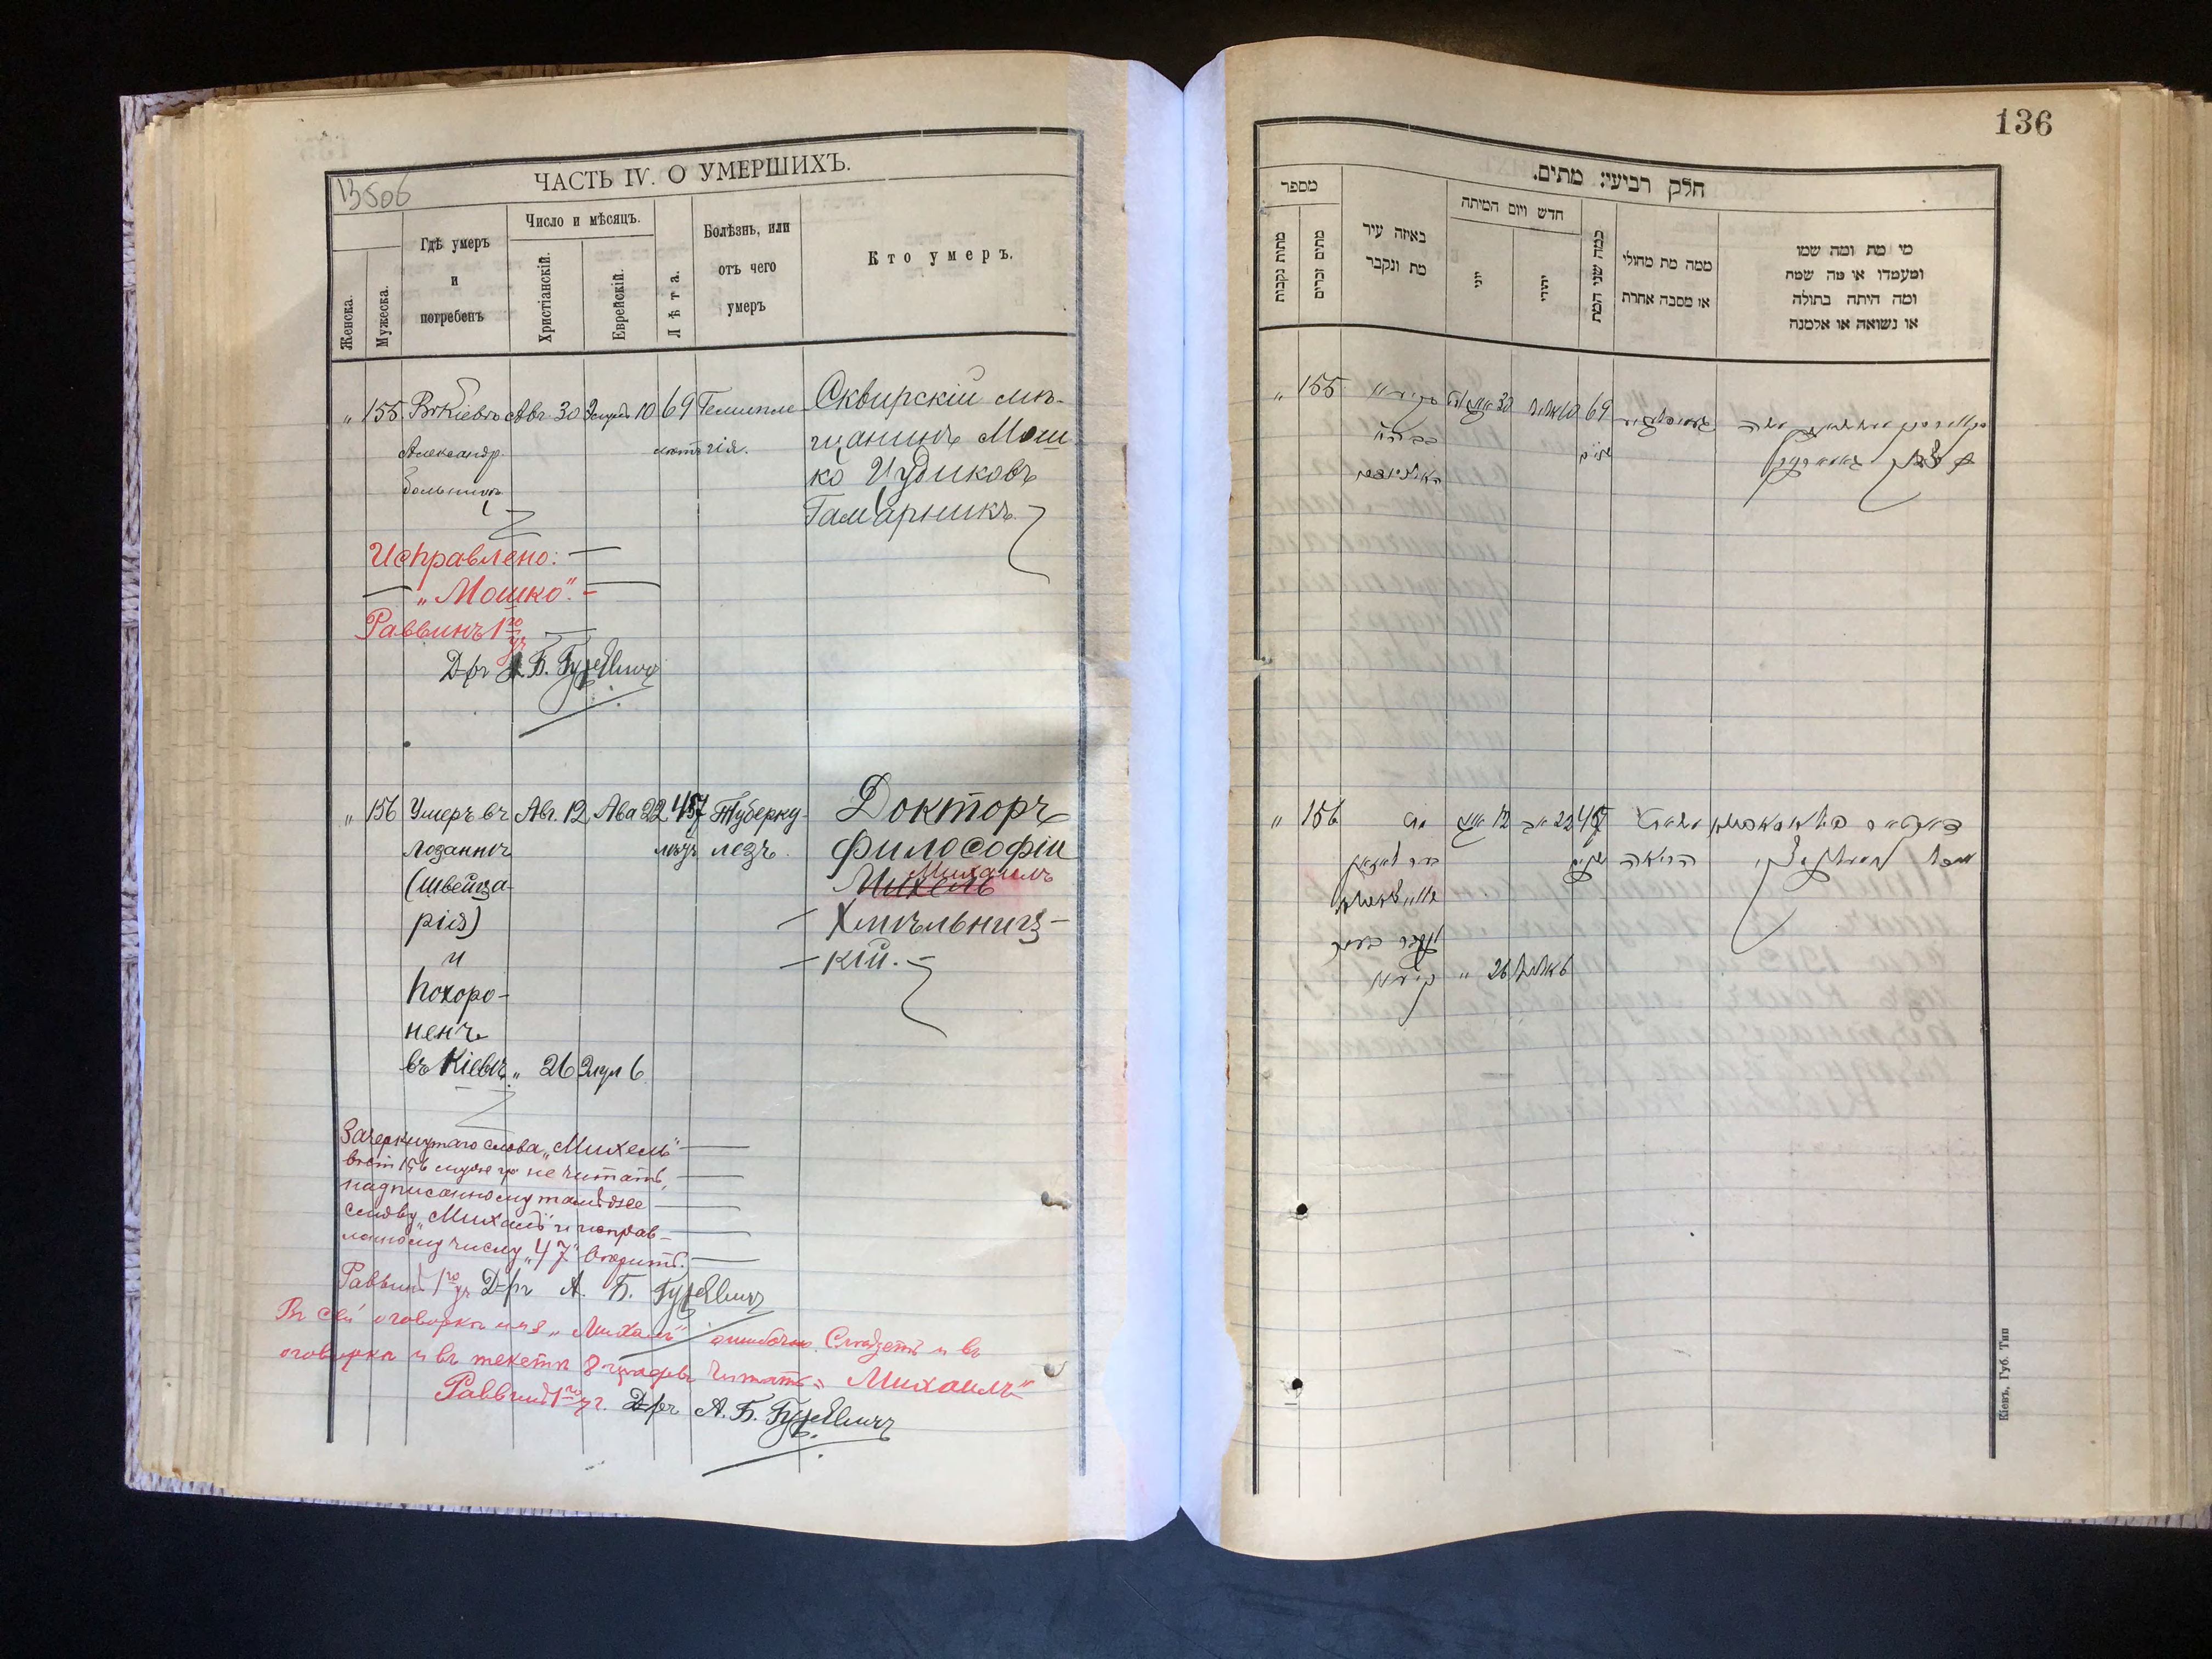 13506
ЧАСТЬ IV. О УМЕРШИХЪ.
Женска.
Мужеска.
Гдѣ умеръ
и
погребенъ
Число и мѣсяцъ.
Христіанскій.
Еврейскій.
Лѣта.
Болѣзнь, или
отъ чего
умеръ
Кто умеръ.
„ 155. Въ Кіевѣ Авг. 30 Элула 10 69 Гемипле- Сквирскій мѣ-
Александр. лѣтъ гія. щанинъ Мош
больницѣ ко Иудиковъ
Гамарникъ.
Исправлено: —
— „Мошко". —
Раввинъ 1го уч.
Д-ръ А. Б. Гуревичъ
„ 156 Умеръ въ Авг. 12 Ава 22 47 Туберку- Докторъ
Лозаннѣ лѣтъ лезъ. Философіи
(Швейца- Михель Михаилъ
рія) — Хмѣльниц-
и — кій. —
Похоро-
ненъ
въ Кіевѣ. „ 26 Элул 6.
Зачеркнутаго слова „Михель"
въ ст 156 муж гр не читать,
надписанному тамъ же
слову „Михалъ" и исправ-
ленному числу „47" вѣрить.
Раввинъ 1го уч Д-ръ А. Б. Гуревичъ
Въ сей оговоркѣ имя „Михалъ" ошибочно. Слѣдуетъ и въ
оговоркѣ и въ текстѣ 8 графы читать: „Михаилъ"
Раввинъ 1го уч. Д-ръ А. Б. Гуревичъ
136
חלק רביעי: מתים.
מספר
מתות נקבות
מתים זכרים
באיזה עיר
מת ונקבר
חדש ויום המיתה
יוני
יהודי
כמה שני המת
ממה מת מחולי
או מסבה אחרת
מי מת ומה שמו
ומעמדו או מה שמת
ומה היתה בתולה
או נשואה או אלמנה
„ 155
30
10
69
„ 156 מת
12
22
47
הריאה
„ 26
6
Кіевъ, Губ. Тип